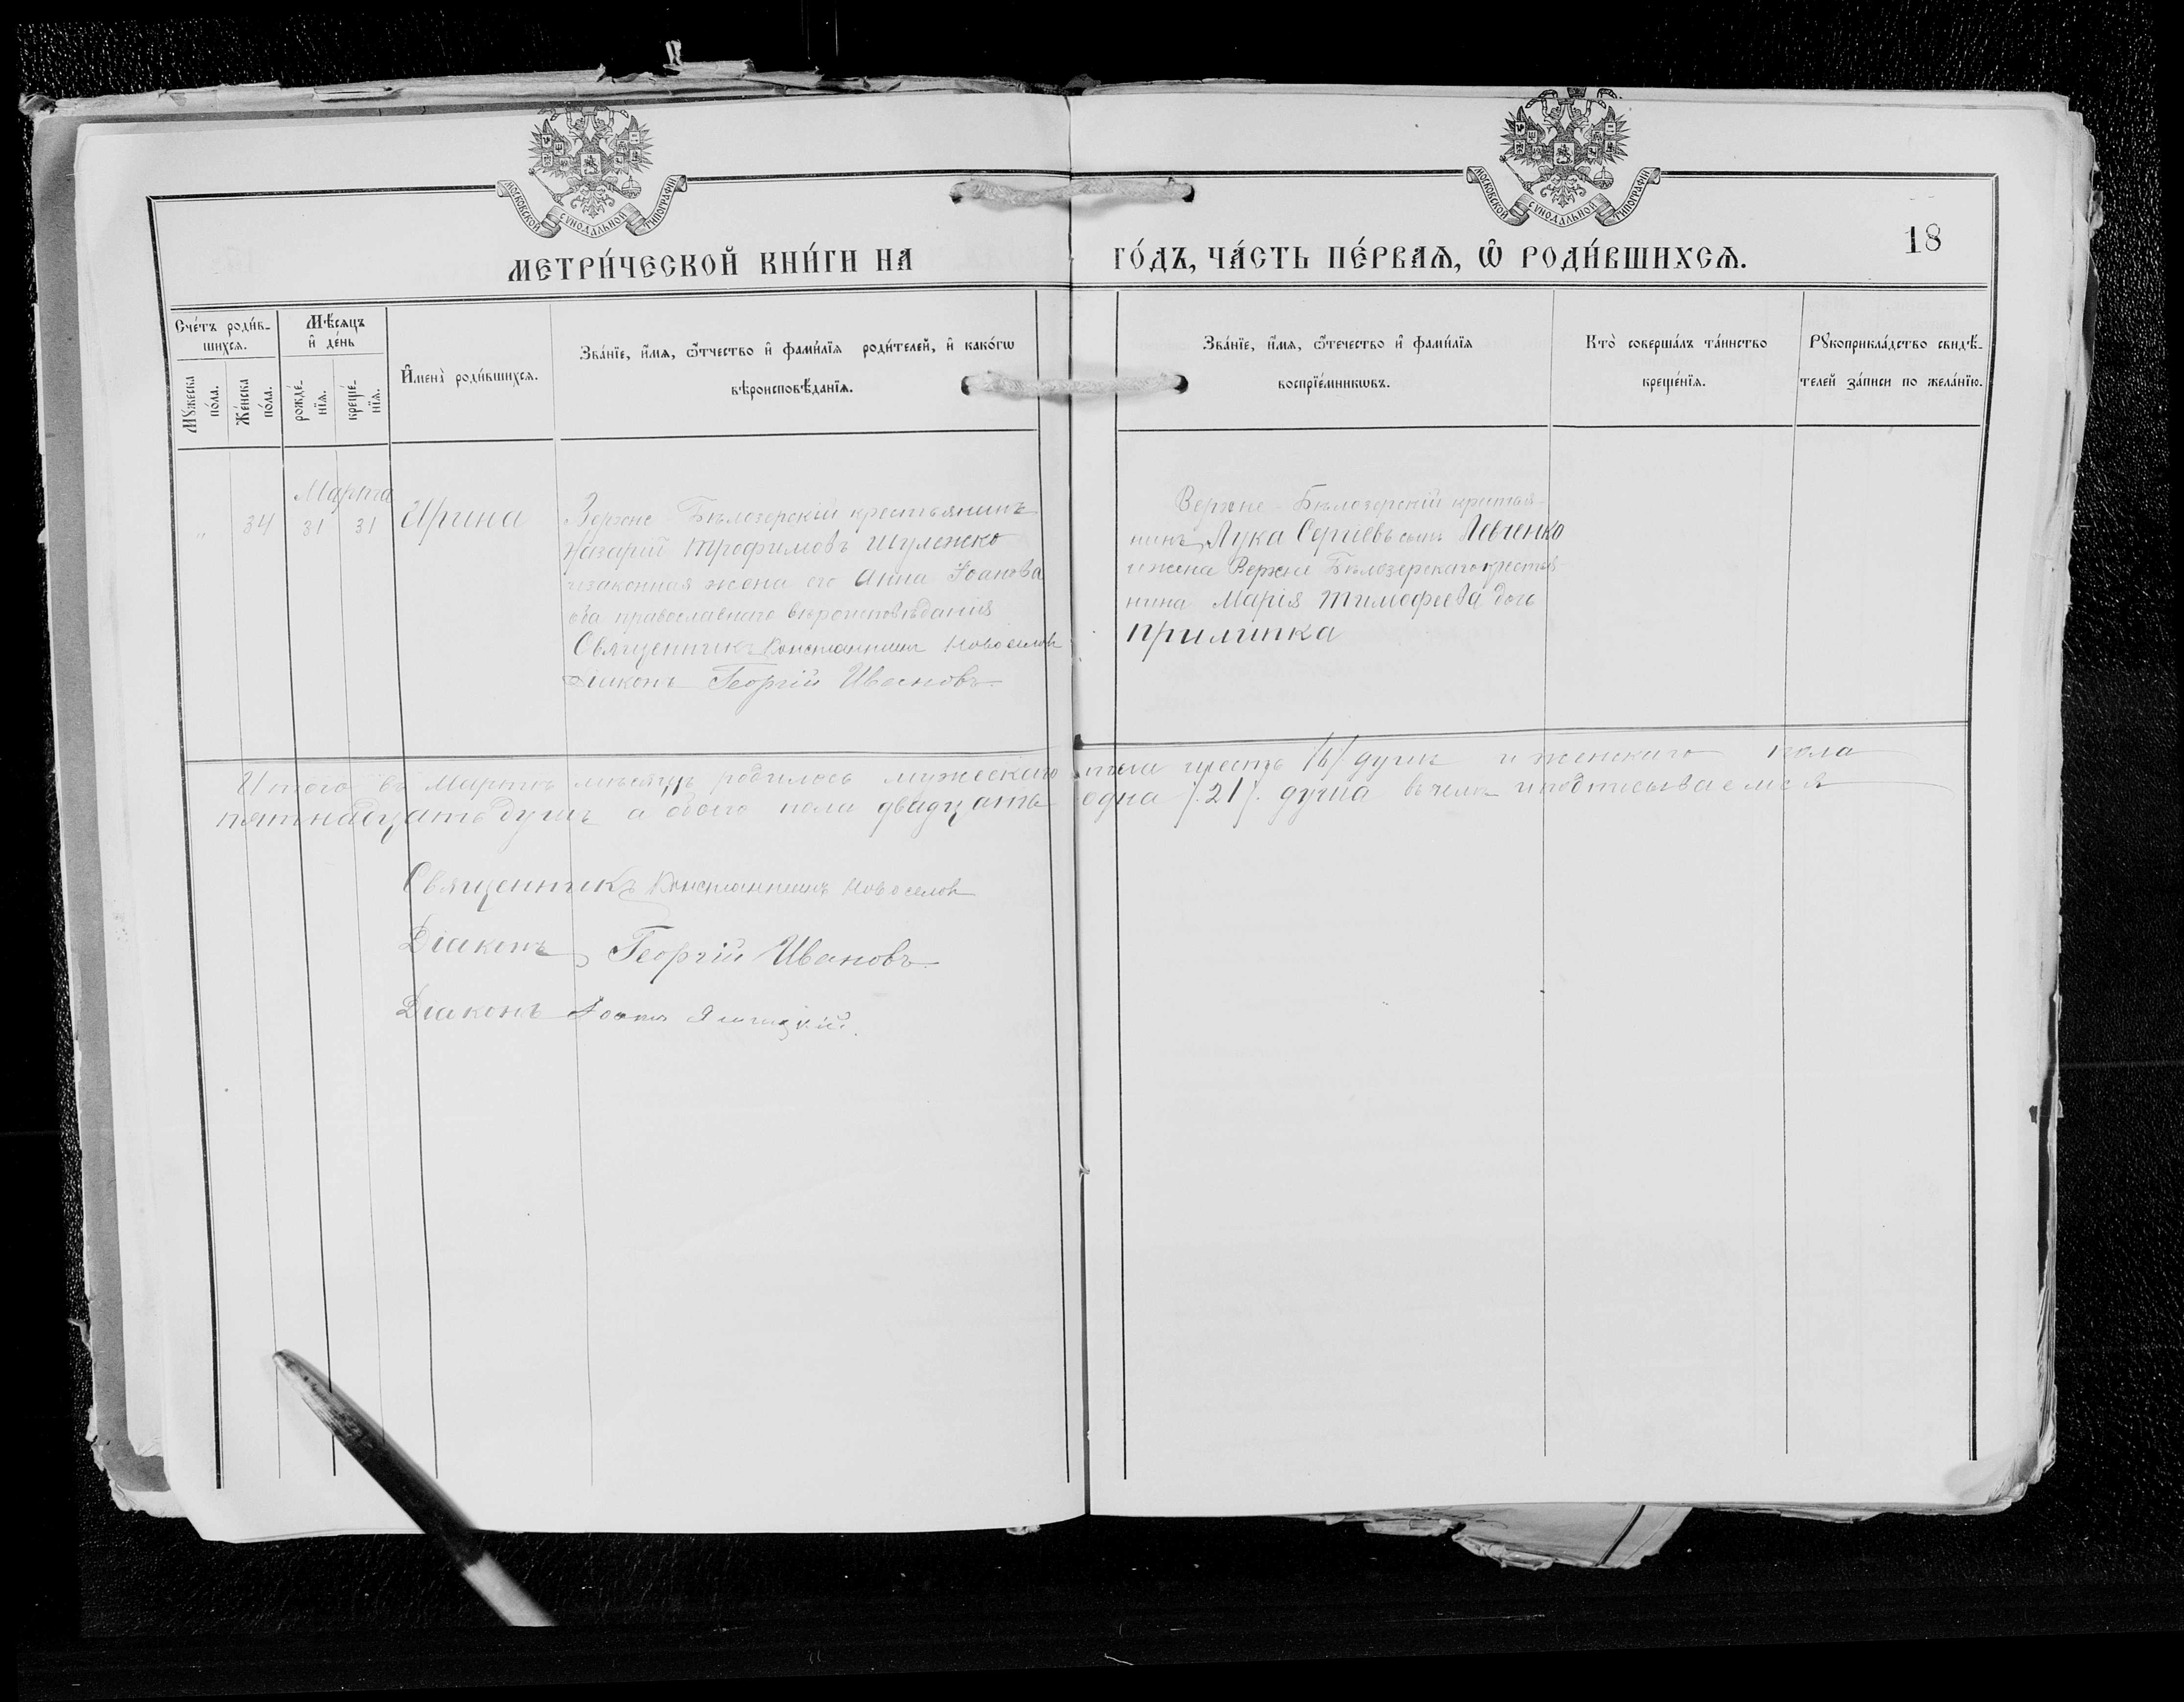 МОСКОВСКОЙ СУНОДАЛЬНОЙ ТИПОГРАФІИ
МОСКОВСКОЙ СУНОДАЛЬНОЙ ТИПОГРАФІИ
18
МЕТРИ́ЧЕСКОЙ КНИ́ГИ НА ГО́ДЪ, ЧА́СТЬ ПЕ́РВАѦ, Ѽ РОДИ́ВШИХСѦ.
Сче́тъ роди́в-
шихсѧ.
Мꙋ́жеска
по́ла.
Же́нска
по́ла.
Мѣ́сѧцъ
и҆ де́нь
рожде́-
нїѧ.
креще́-
нїѧ.
И҆мена̀ роди́вшихсѧ.
Зва́нїе, и҆́мѧ, ѻ҆́тчество и҆ фами́лїѧ роди́телей, и҆ како́гѡ
вѣроисповѣ́данїѧ.
Зва́нїе, и҆́мѧ, ѻ҆́течество и҆ фами́лїѧ
воспрїе́мникѡвъ.
Кто̀ соверша́лъ та́инство
креще́нїѧ.
Рꙋкоприкла́дство свидѣ́-
телей за́писи по жела́нїю.
Марта
„ 34 31 31 Ирина
Верхне-Бѣлозерскій крестьянинъ
Назарій Трофимовъ
и законная жена его Анна Іоанова
оба православнаго вѣроисповѣданія
Священникъ Константинъ Новоселов
Діаконъ Георгій Ивановъ
Верхне-Бѣлозерскій крестья-
нинъ Лука Сергіевъ сынъ Левченко
и жена Верхне Бѣлозерскаго крестья-
нина Марія Тимофеева дочь
Прилипка
Итого въ Мартѣ мѣсяцѣ родилось мужескаго пола шесть /6/ душъ и женскаго пола
пятнадцать душъ а обоего пола двадцать одна /.21/. душа въ чемъ и подписываемся
Священникъ Константинъ Новоселов
Діаконъ Георгій Ивановъ
Діаконъ Іоаннъ